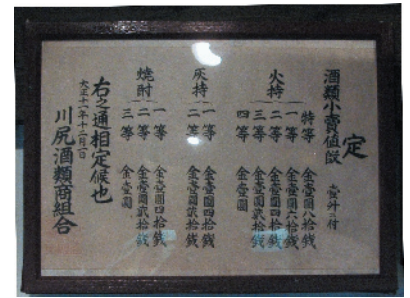 定
酒類小賣値段 壹升ニ付
火持
特等 金壹圓八拾銭
一等 金壹圓六拾銭
二等 金壹圓四拾銭
三等 金壹圓貮拾銭
四等 金壹圓
灰持
一等 金壹圓四拾銭
二等 金壹圓貮拾銭
焼酎
一等 金壹圓四拾銭
二等 金壹圓貮拾銭
三等 金壹圓
右之通相定候也
大正十一年十二月一日
川尻酒類商組合